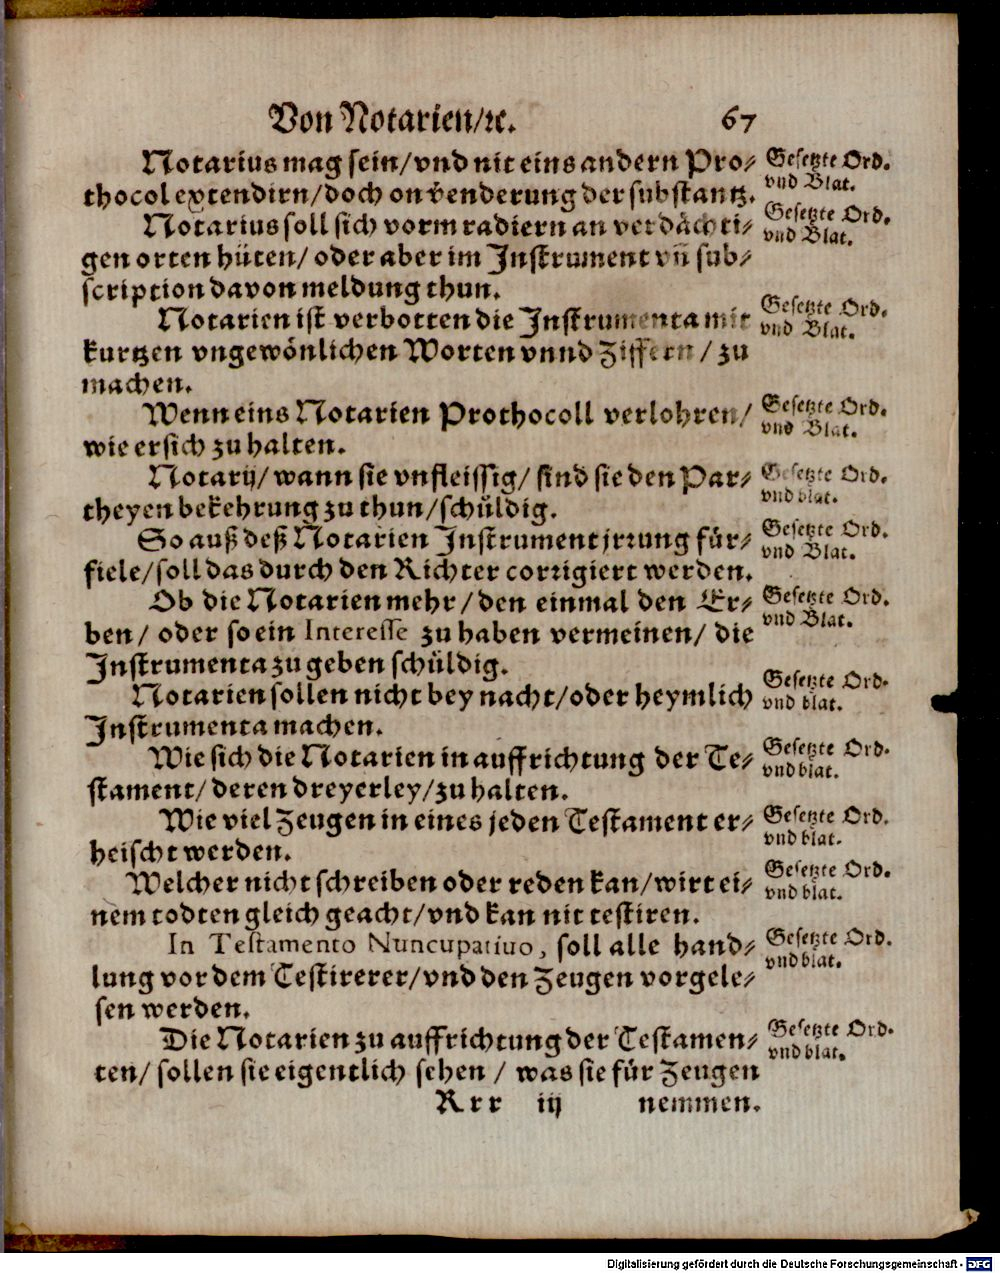 Von Notarien/ꝛc. 67
Notarius mag sein/vnd nit eins andern Pro- Gesetzte Ord.
thocol extendirn/doch on ṽenderung der substantz. vnd Blat.
Notarius soll sich vorm radiern an verdächti- Gesetzte Ord.
gen orten hüten/ oder aber im Instrument vñ sub- vnd Blat.
scription davon meldung thun.
Notarien ist verbotten die Instrumenta mit Gesetzte Ord.
kurtzen vngewönlichen Worten vnnd Ziffern / zu vnd Blat.
machen.
Wenn eins Notarien Prothocoll verlohren/ Gesetzte Ord.
wie er sich zu halten. vnd Blat.
Notarij/ wann sie vnfleissig/ sind sie den Par- Gesetzte Ord.
theyen bekehrung zu thun/schüldig. vnd blat.
So auß deß Notarien Instrument jrrung für- Gesetzte Ord.
fiele/soll das durch den Richter corrigiert werden. vnd Blat.
Ob die Notarien mehr/ den einmal den Er- Gesetzte Ord.
ben/ oder so ein Interesse zu haben vermeinen/ die vnd Blat.
Instrumenta zu geben schüldig.
Notarien sollen nicht bey nacht/oder heymlich Gesetzte Ord.
Instrumenta machen. vnd blat.
Wie sich die Notarien in auffrichtung der Te- Gesetzte Ord.
stament/ deren dreyerley/zu halten. vnd blat.
Wie viel Zeugen in eines jeden Testament er- Gesetzte Ord.
heischt werden. vnd blat.
Welcher nicht schreiben oder reden kan/wirt ei- Gesetzte Ord.
nem todten gleich geacht/vnd kan nit testiren. vnd blat.
In Testamento Nuncupatiuo, soll alle hand- Gesetzte Ord.
lung vor dem Testirerer/vnd den Zeugen vorgele- vnd blat.
sen werden.
Die Notarien zu auffrichtung der Testamen- Gesetzte Ord.
ten/ sollen sie eigentlich sehen / was sie für Zeugen vnd blat.
Rrr iij nemmen.
Digitalisierung gefördert durch die Deutsche Forschungsgemeinschaft - DFG